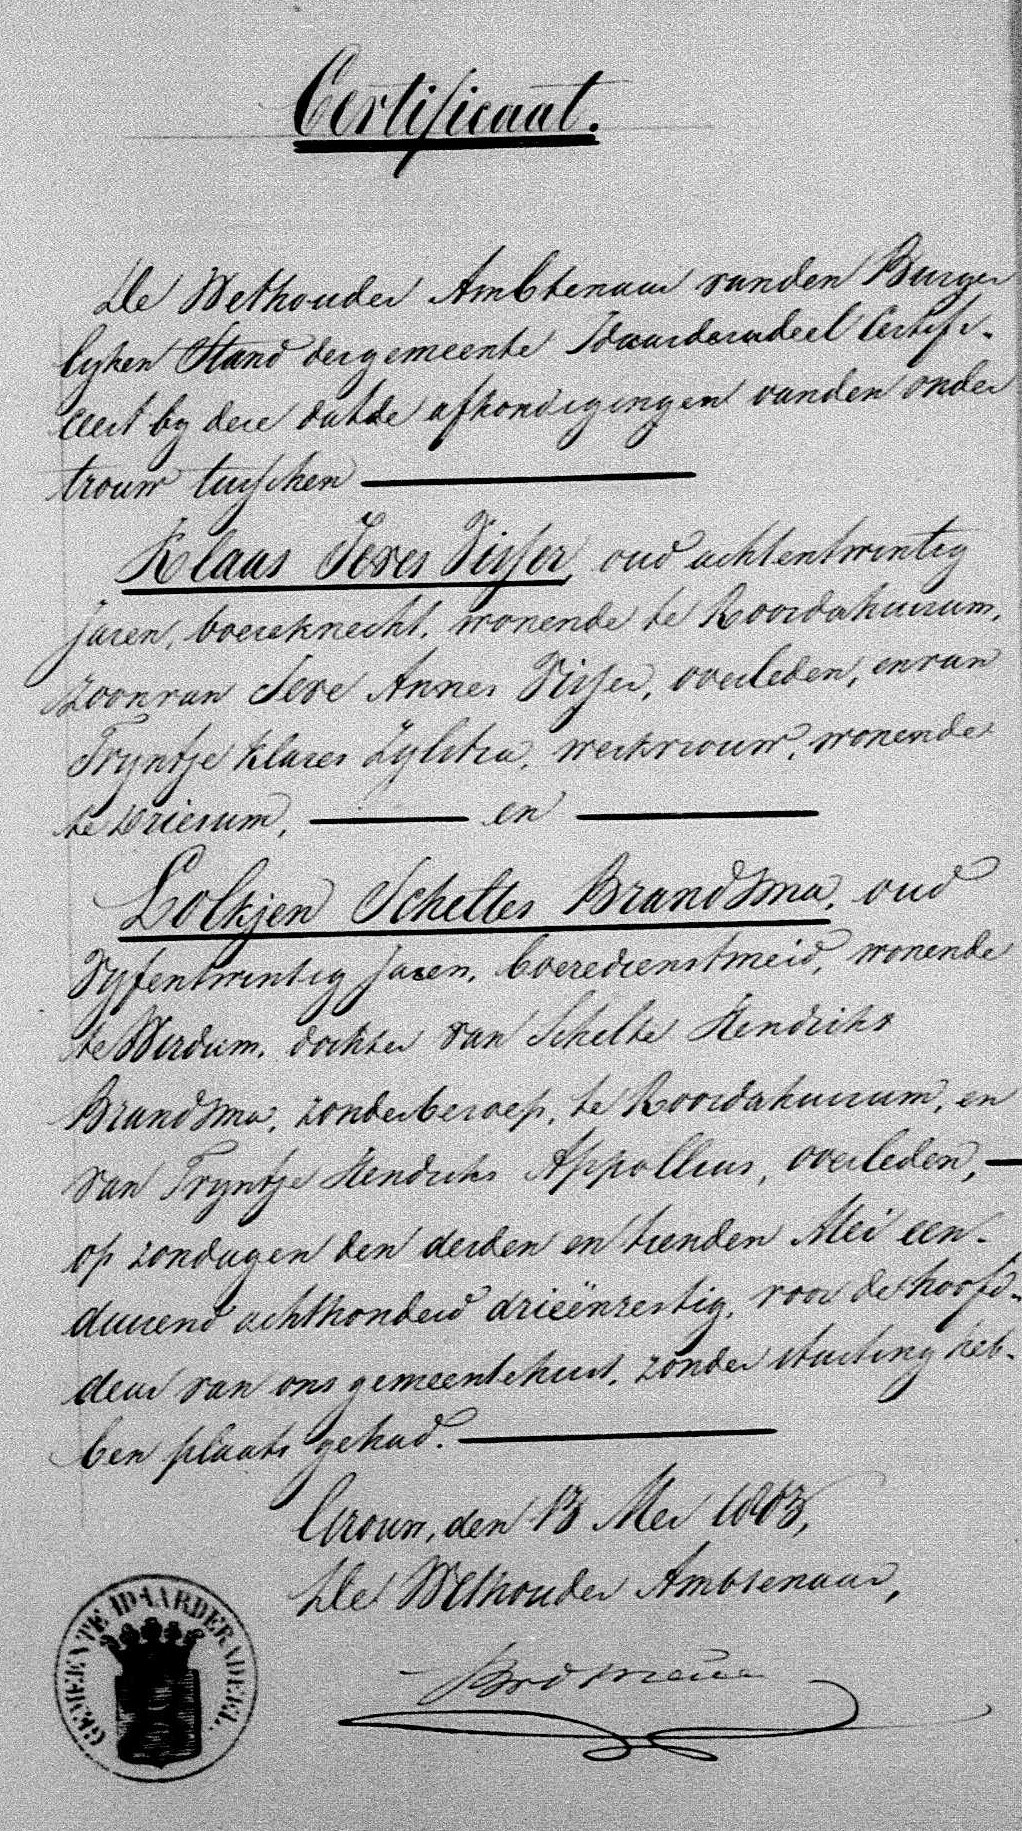 Certificaat.
De Wethouder Ambtenaar vanden Burger
lyken Stand der gemeente Idaarderadeel Certifi-
ceert by deze dat de afkondigingen vanden onder
trouw tusschen
Klaas Sexes Visser, oud achtentwintig
jaren, boereknecht, wonende te Roordahuizum,
zoon van Sexe Annes Visser, overleden, en van
Tryntje Klazes Zylstra, werkvrouw, wonende
te Driesum, en
Lolkjen Scheltes Brandsma, oud
Vyfentwintig jaren, boeredienstmeid, wonende
te Wirdum, dochter van Schelte Hendriks
Brandsma, zonder beroep, te Roordahuizum, en
van Tryntje Hendriks Appollius, overleden,
op zondagen den derden en tienden Mei een-
duizend achthonderd drieënzestig, voor de hoofd-
deur van ons gemeentehuis, zonder stuiting heb-
ben plaats gehad.
Grouw, den 13 Mei 1863,
De Wethouder Ambtenaar,
GEMEENTE IDAARDERADEEL.